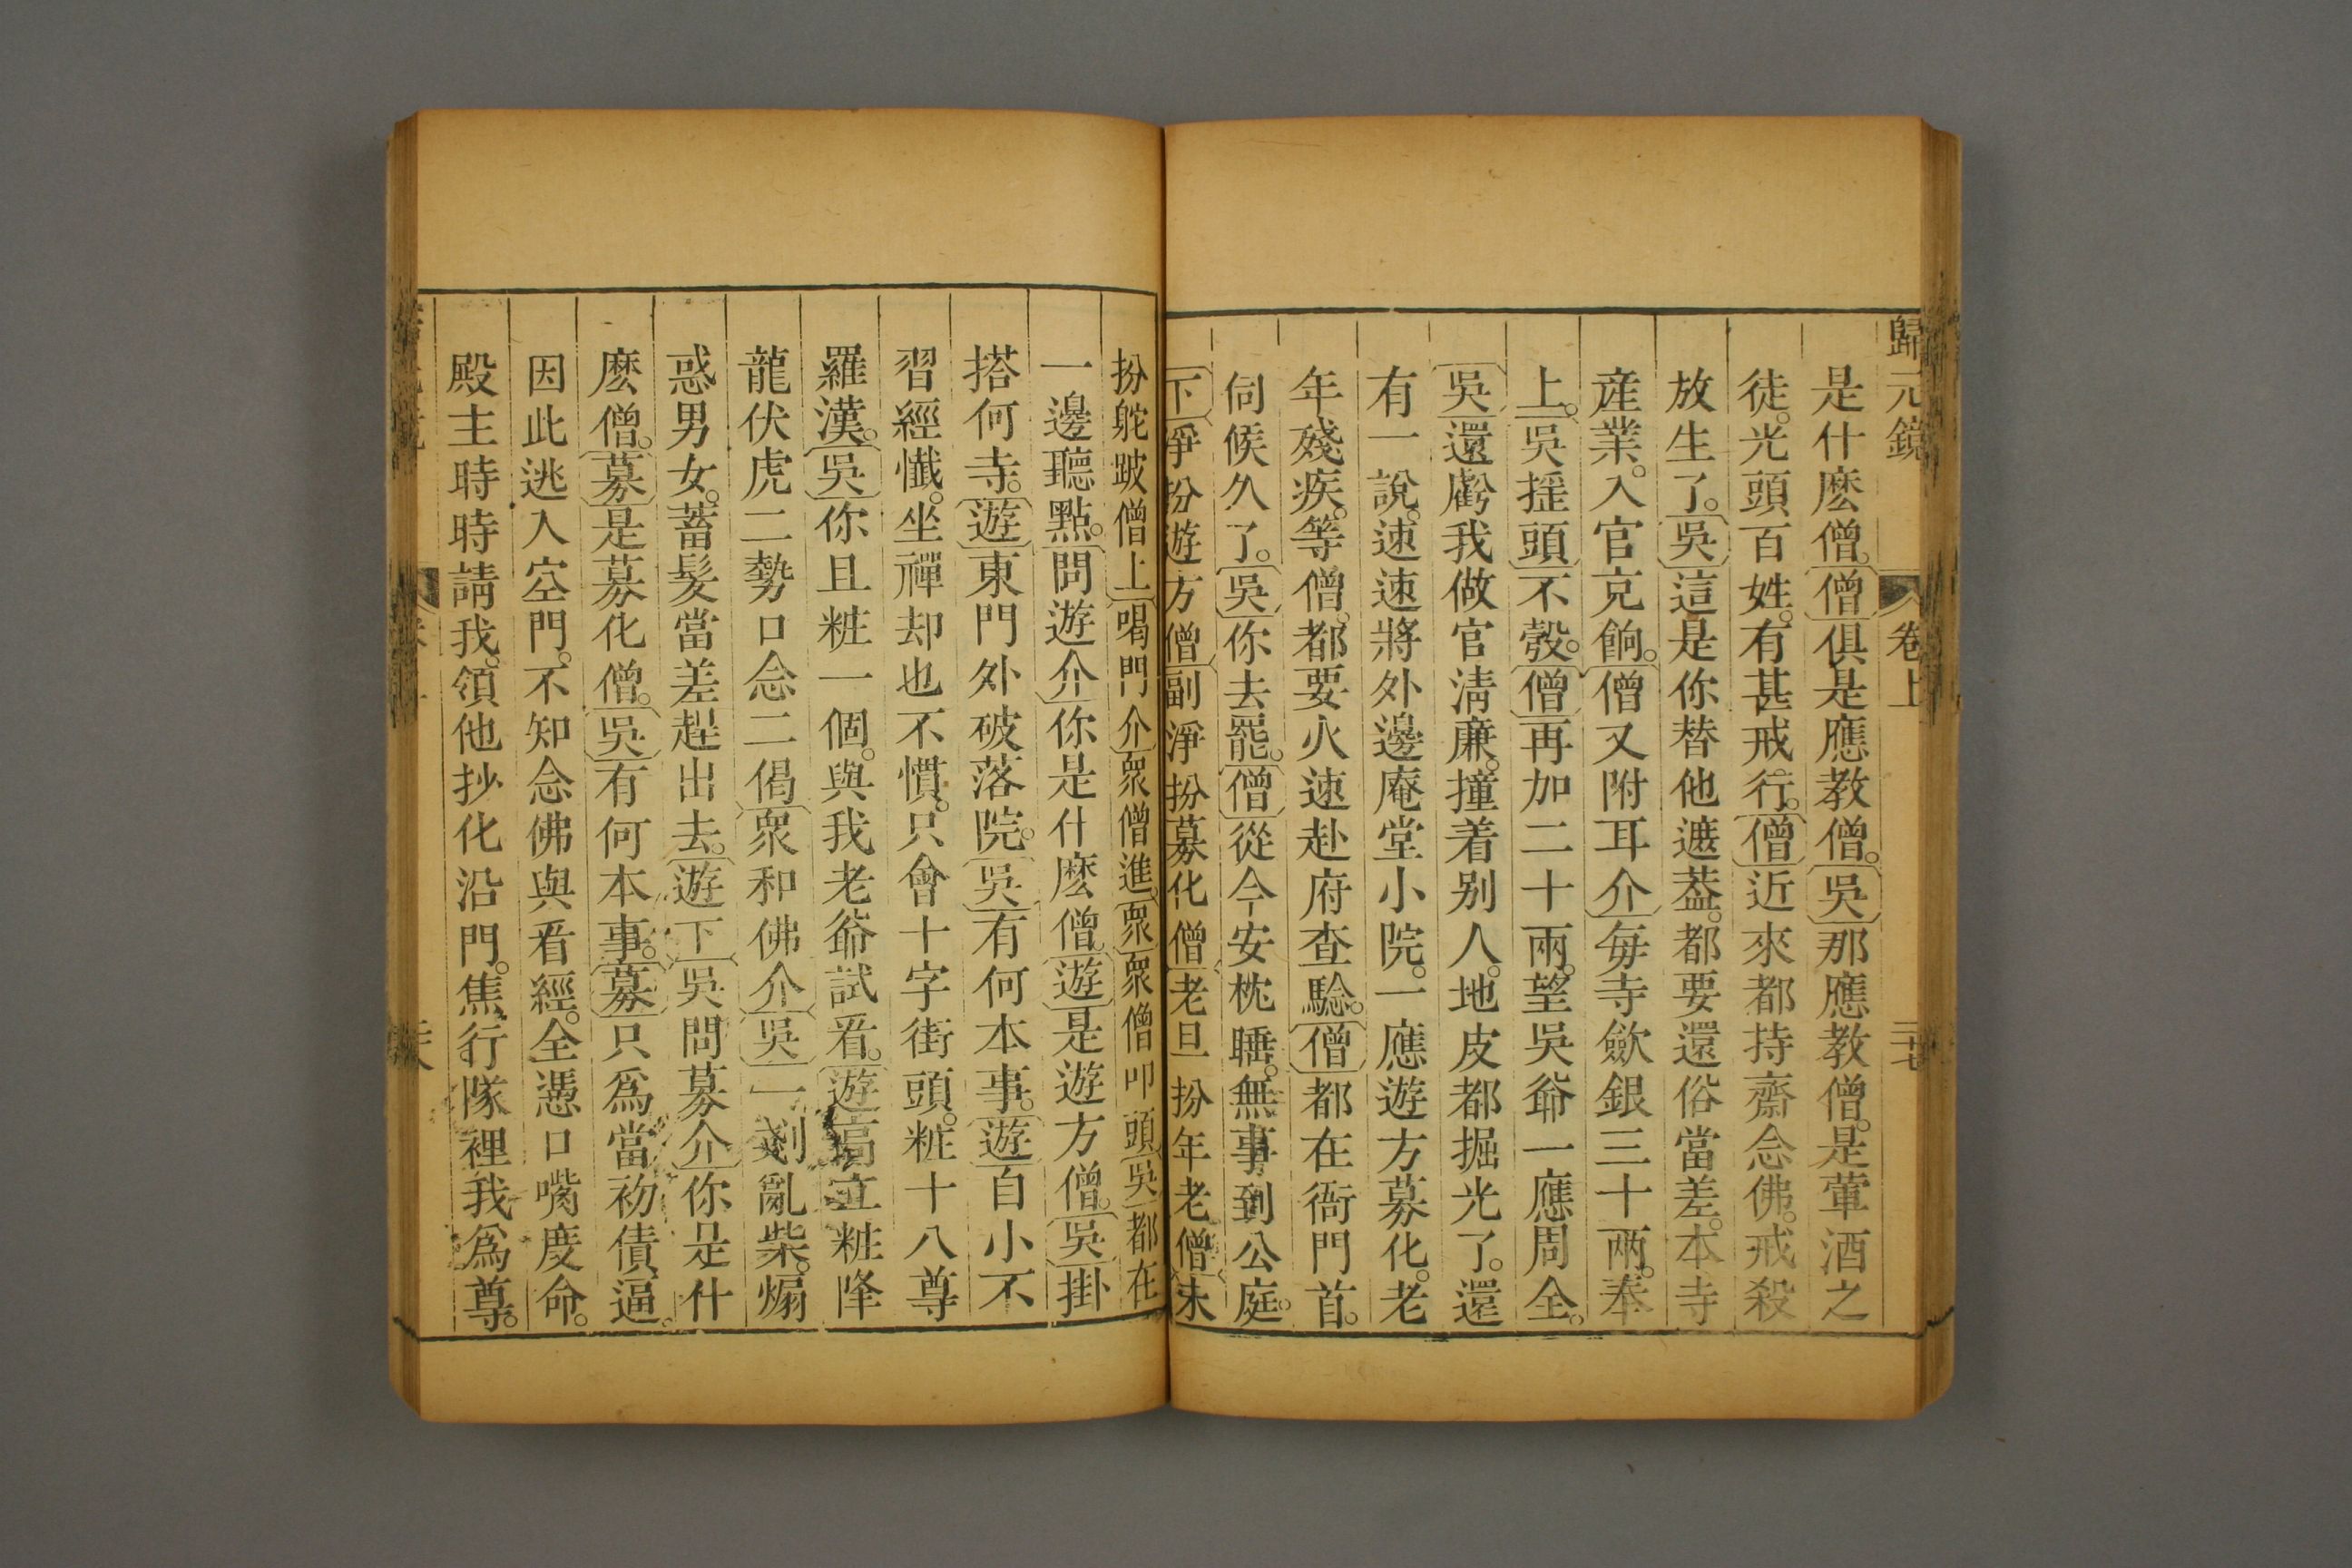 歸元鏡 卷上 三七
是什麽僧。僧俱是應教僧。吳那應教僧。是葷酒之
徒。光頭百姓。有甚戒行。僧近來都持齋念佛。戒殺
放生了。吳這是你替他遮葢。都要還俗當差。本寺
産業。入官克餉。僧又附耳介每寺歛銀三十兩。奉
上。吳揺頭不彀。僧再加二十兩。望吳爺一應周全。
吳還虧我做官淸廉。撞着别人。地皮都掘光了。還
有一說。速速將外邊庵堂小院。一應遊方募化。老
年殘疾。等僧。都要火速赴府查驗。僧都在衙門首。
伺候久了。吳你去罷。僧從今安枕睡。無事到公庭。
下淨扮遊方僧副淨扮募化僧老旦扮年老僧末
扮駝跛僧上喝門介衆僧進衆衆僧叩頭吳都在
一邊聽點。問遊介你是什麽僧。遊是遊方僧。吳掛
搭何寺。遊東門外破落院。吳有何本事。遊自小不
習經懺。坐禪却也不慣。只會十字街頭。粧十八尊
羅漢。吳你且粧一個。與我老爺試看。遊立粧降
龍伏虎二勢口念二偈衆和佛介吳一剗亂柴。煽
惑男女。蓄髮當差趕出去。遊下吳問募介你是什
麽僧。募是募化僧。吳有何本事。募只爲當初債逼。
因此逃入空門。不知念佛與看經。全憑口嘴度命。
殿主時時請我。領他抄化沿門。焦行隊裡我爲尊。